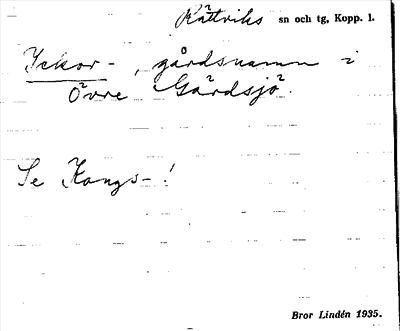 Rättviks sn och tg, Kopp. l.
Yckor-, gårdsnamn i
Övre Gärdsjö.
Se Kongs-!
Bror Lindén 1935.